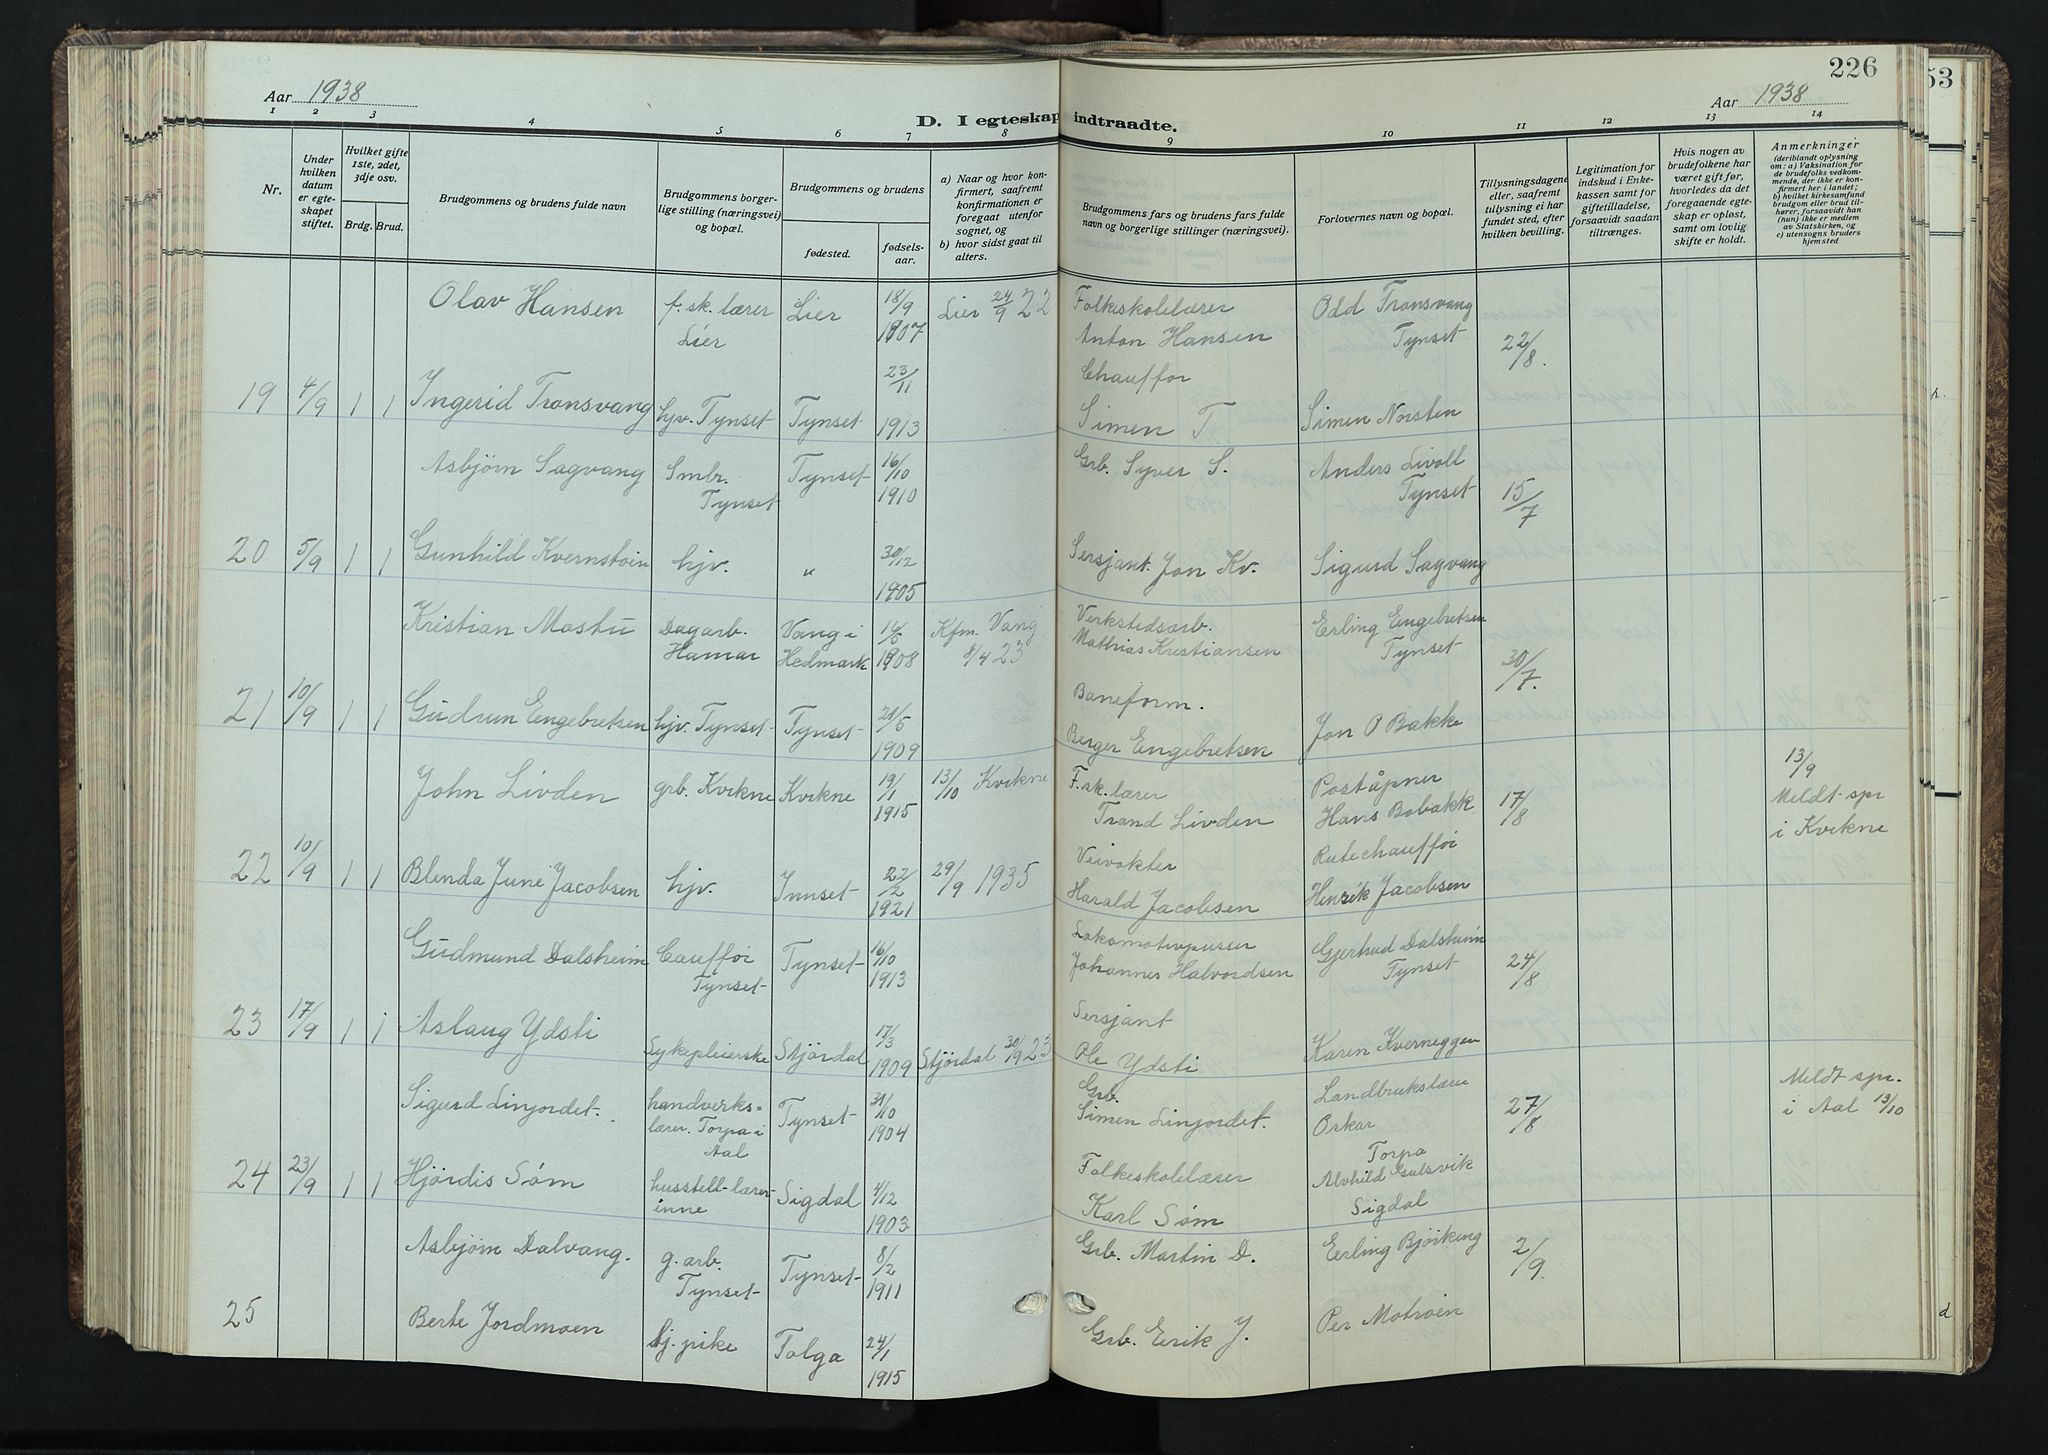 226
53
Aar 1938
Aar 1938
D. I egteskap indtraadte.
1 2 3 4 5 6 7 8 9 10 11 12 13 14
Nr.
Under hvilken datum er egteskapet stiftet.
Hvilket gifte 1ste, 2det, 3dje osv.
Brdg. Brud.
Brudgommens og brudens fulde navn
Brudgommens borgerlige stilling (næringsvei) og bopæl.
Brudgommens og brudens
fødested.
fødselsaar.
a) Naar og hvor konfirmert, saafremt konfirmationen er foregaat utenfor sognet, og
b) hvor sidst gaat til alters.
Brudgommens fars og brudens fars fulde navn og borgerlige stillinger (næringsvei).
Forlovernes navn og bopæl.
Tillysningsdagene eller, saafremt tillysning ei har fundet sted, efter hvilken bevilling.
Legitimation for indskud i Enkekassen samt for giftetilladelse, forsaavidt saadan tiltrænges.
Hvis nogen av brudefolkene har været gift før, hvorledes da det foregaaende egteskap er opløst, samt om lovlig skifte er holdt.
Anmerkninger
(deriblandt oplysning om: a) Vaksination for de brudefolks vedkommende, der ikke er konfirmert her i landet; b) hvilket kirkesamfund brudgom eller brud tilhører, forsaavidt han (hun) ikke er medlem av Statskirken, og c) utensogns bruders hjemsted
Olav Hansen f. sk. lærer Lier Lier 18/9 1907 Lier 24/9 22 Folkeskolelærer Anton Hansen Odd Tronsvang Tynset 22/8.
19 4/9 1 1 Ingerid Tronsvang hjv. Tynset Tynset 23/11 1913 Chauffør Simen T Simen Norsten
Asbjørn Sagvang Smbr. Tynset Tynset 16/10 1910 Grb. Syver S. Anders Livoll Tynset 15/7
20 5/9 1 1 Gunhild Kvernstoin hjv. " 30/12 1905 Sersjant. Jon Kv. Sigurd Sagvang
Kristian Mostu Dagarb. Hamar Vang i Hedmark 1908 Kfm. Vang 8/4 23 Verkstedsarb. Mathias Kristiansen Erling Engebretsen Tynset 30/7.
21 10/9 1 1 Gudrun Engebretsen hjv. Tynset Tynset 21/5 1909 Baneform. Berger Engebretsen Jon O Bakke
John Livden grb. Kvikne Kvikne 19/1 1915 13/10 Kvikne F. sk. lærer Trond Livden Poståpner Hans Bobakk 17/8 13/9 Meldt spr i Kvikne
22 10/9 1 1 Blenda June Jacobsen hjv. Innset 22/2 1921 29/9 1935 Veivokter Harald Jacobsen Rutechauffør Henrik Jacobsen
Gudmund Dalsheim Cauffør Tynset Tynset 16/10 1913 Lokomotivpusser Johannes Halvordsen Gjertrud Dalsheim Tynset 24/8
23 17/9 1 1 Aslaug Ydsti Sykepleierske Stjørdal 17/3 1909 Stjørdal 30/9 23 Sersjant Ole Ydsti Karen Kverneggen
Sigurd Linjordet. handverkslærer. Torpa i Aal Tynset 31/10 1904 Grb. Simen Linjordet. Landbrukslærer Oskar Torpo 27/8 Meldt spr. i Aal 13/10
24 23/9 1 1 Hjørdis Søm husstell-lærerinne Sigdal 4/12 1903 Folkeskolelærer Karl Søm Alvhild Gulsvik Sigdal
Asbjørn Dalvang. g. arb. Tynset Tynset 8/2 1911 Grb. Martin D. Erling Bjørkeng 2/9.
25 Berte Jordmoen hj. pike Tolga 24/1 1915 Grb. Eirik J. Per Motrøen